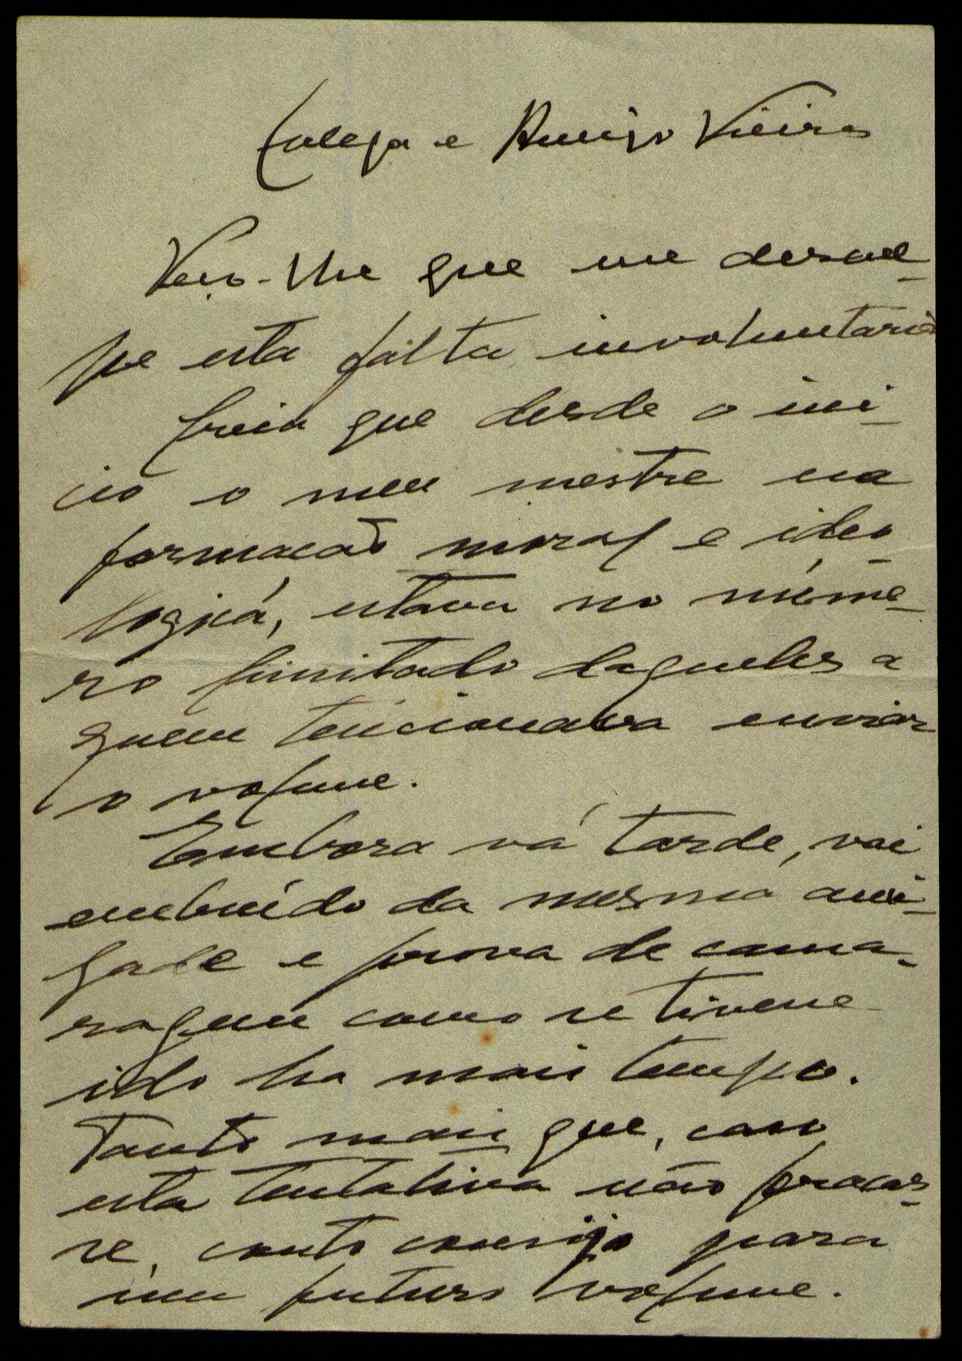 Colega e Amigo Vieira
Peço-lhe que me descul-
pe esta falta involuntaria
Creia que desde o iní-
cio o meu mestre na
formacão moral e ideo
logica, estava no núme-
ro limitado daqueles a
quem tencionava enviar
o volume.
Embora vá tarde, vai
embuído da mesma ami-
zade e prova de cama-
ragem como se tivesse
ido ha mais tempo.
Tanto mais que, caso
esta tentativa não fracas-
se, conto consigo para
um futuro volume.